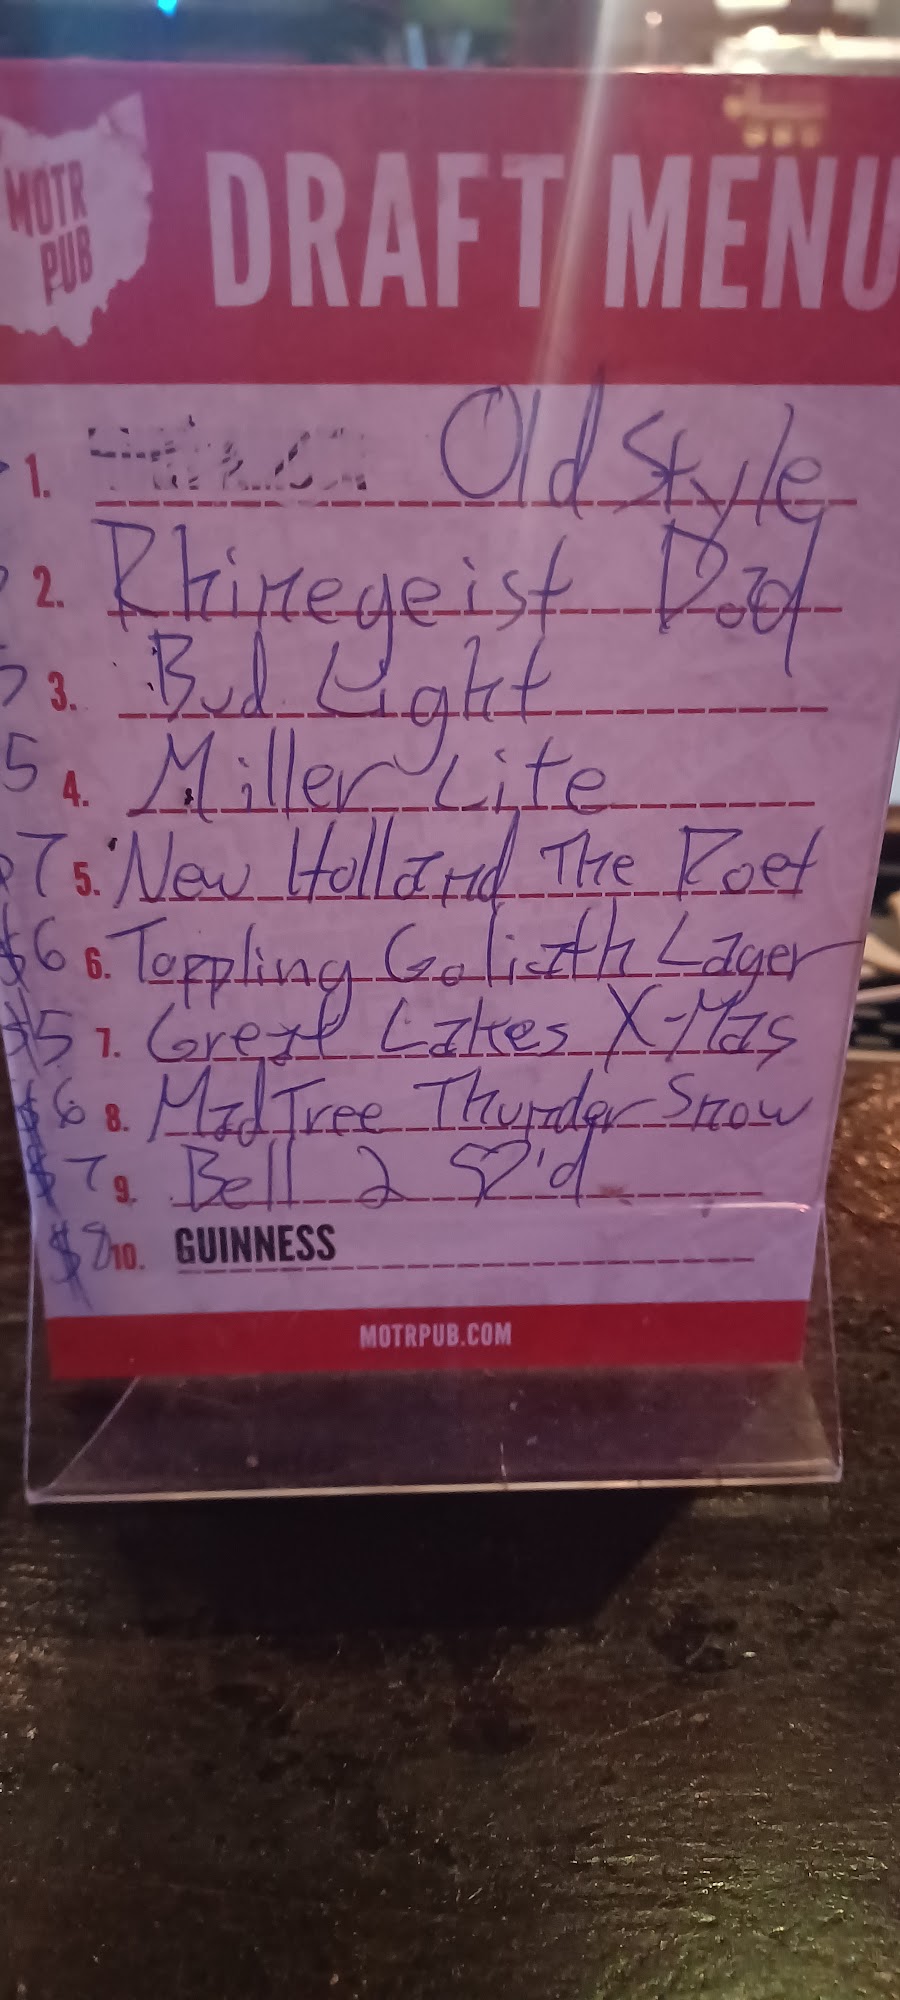 MOTR PUB
DRAFT MENU
1. Old Style
2. Rhinegeist Dad
3. Bud Light
5 4. Miller Lite
7 5. New Holland The Poet
$6 6. Toppling Goliath Lager
$5 7. Great Lakes X-Mas
$6 8. MadTree Thunder Snow
$7 9. Bell 2 ♡'d
$8 10. GUINNESS
MOTRPUB.COM